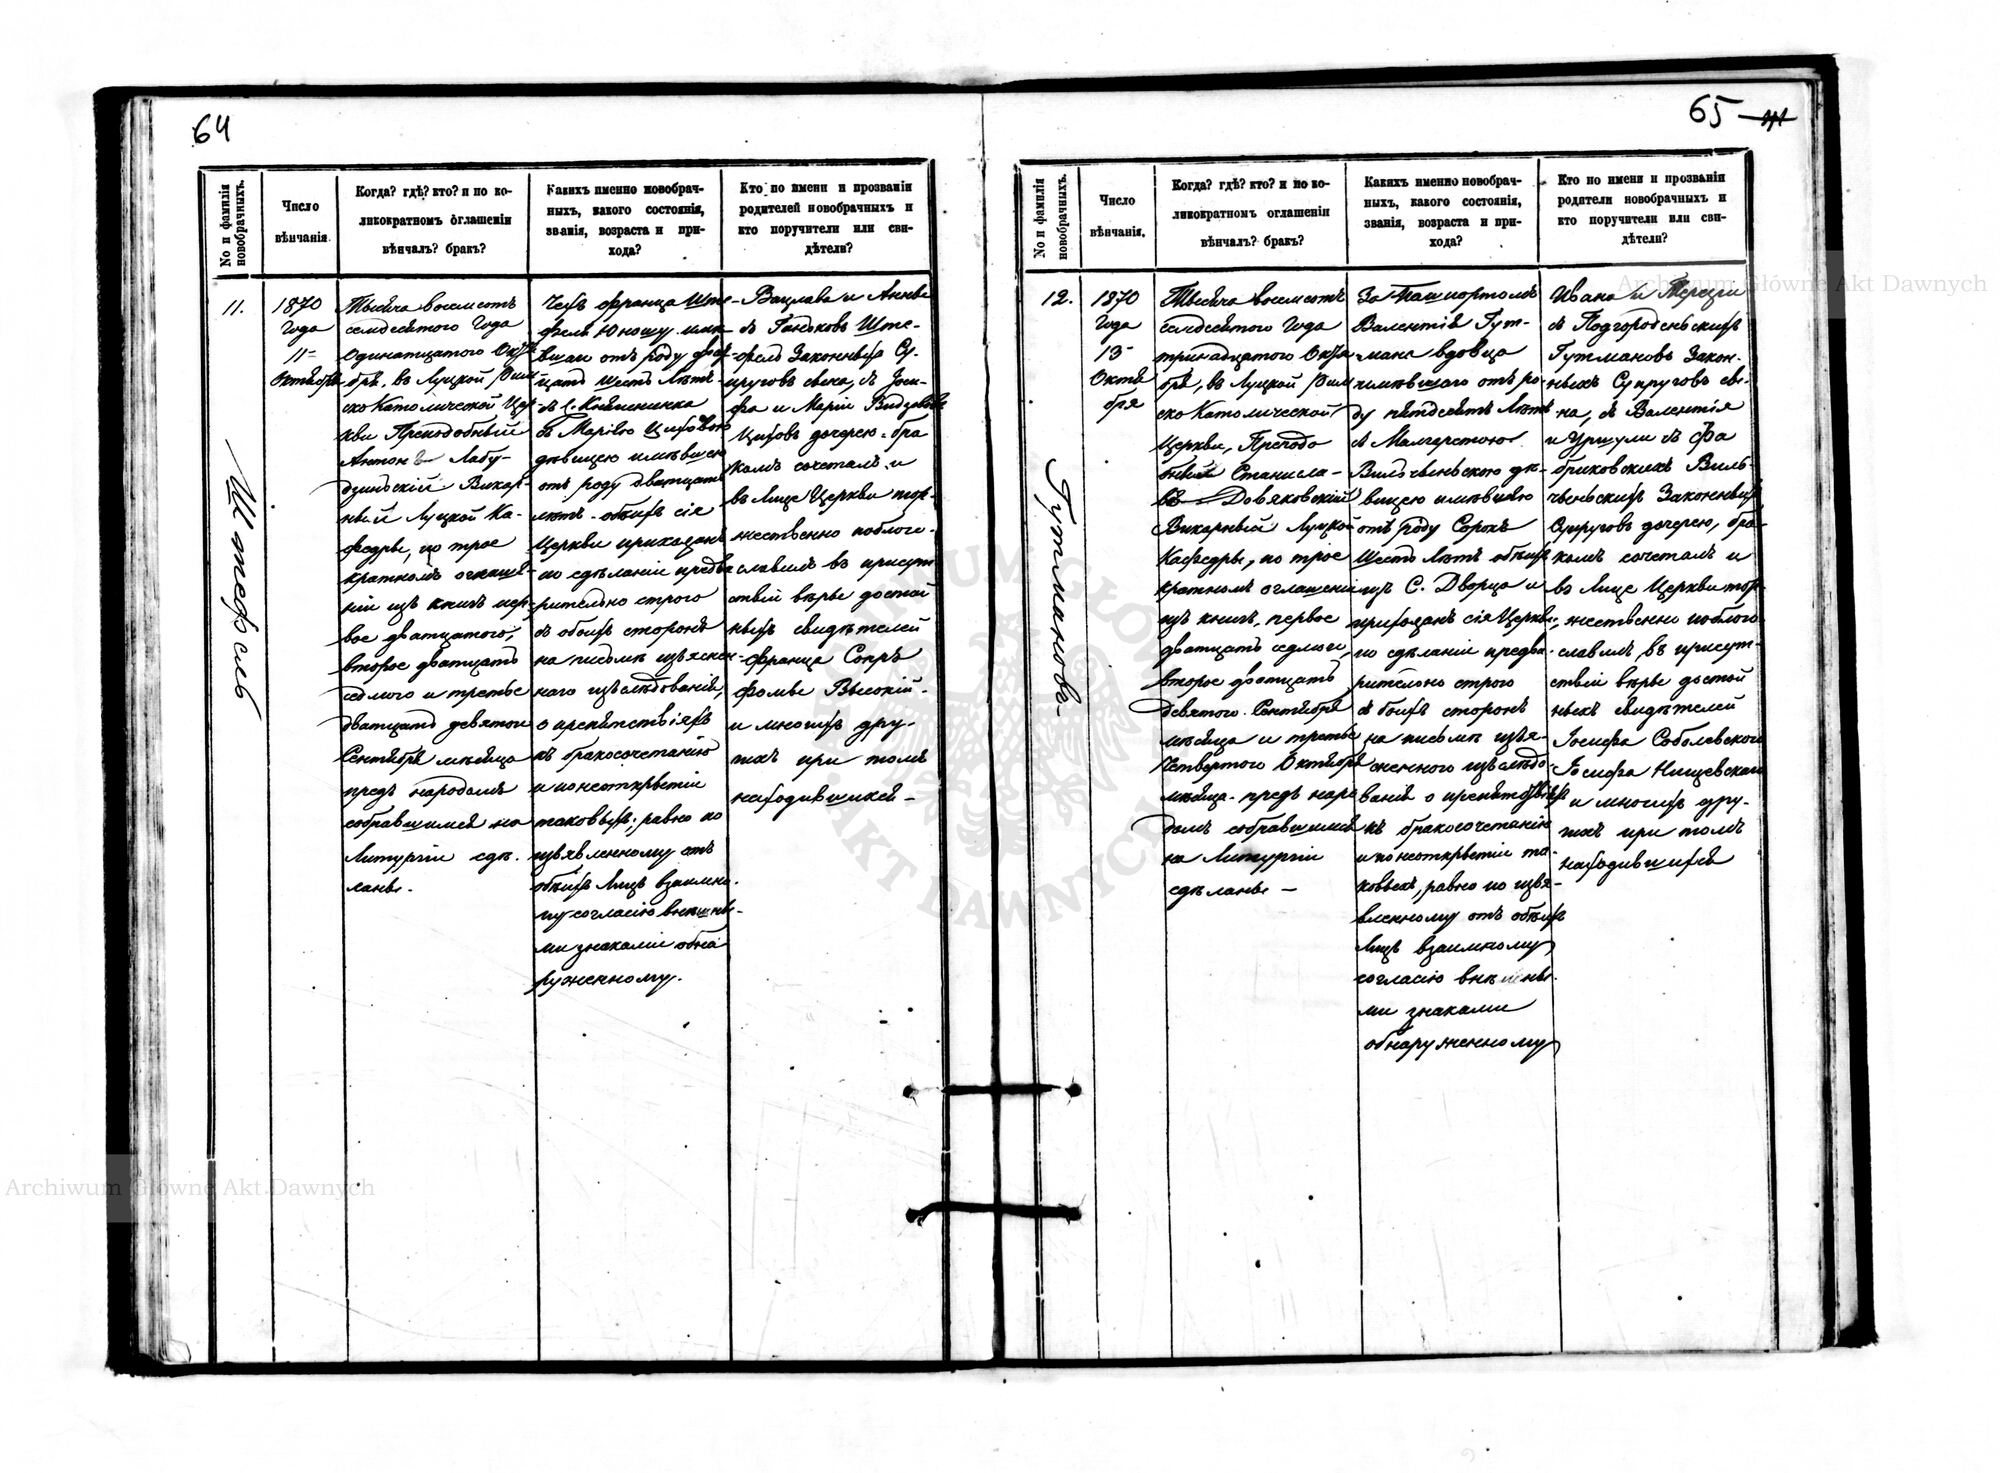 64
No и фамилія новобрачныхъ.
Число вѣнчанія
Когда? гдѣ? кто? и по ко-
ликократномъ оглашеніи
вѣнчалъ? бракъ?
Какихъ именно новобрач-
ныхъ, какого состоянія,
званія, возраста и при-
хода?
Кто по имени и прозваніи
родителей новобрачныхъ и
кто поручители или сви-
дѣтели?
11.
Штефель
1870
Года
11
Октября
Тысяча восемсотъ
семдесятого Года
Одинатцатого Октя-
бря, въ Луцкой Рим
ско Католической Цер
кви Преподобный
Антонъ Лабу-
дзинскій Викар-
ный Луцкой Ка-
федры, по трое
кратномъ оглаше-
ніи изъ книгъ пер-
вое дватцатого,
второе дватцать
седмого и третье
дватцать девятого
Сентября мѣсяца
предъ народомъ
собравшимся на
Литургіи сдѣ-
ланы.
Чехъ Франца Ште-
феля Юношу имѣ
вшаго отъ роду двад-
цать шесть Лѣтъ
съ С. Княгининка
съ Маріею Циховою
дѣвицею имѣвшею
отъ роду дватцать
лѣтъ обоихъ сія
Церкви прихожанъ
по сдѣланіи предва
рительно строго
съ обоихъ сторонъ
на письмѣ изъяснен-
наго изслѣдованія,
о препятствіяхъ
къ бракосочетанію
и по неоткрытіи
таковыхъ; равно по
изъявленному отъ
обоихъ Лицъ взаимно-
му согласію внѣшны-
ми знаками обна
руженному.
Вацлава и Анны
съ Штe-
фель Законныхъ Су-
пруговъ сына, съ Іоси-
фа и Маріи
Циховъ дочерею бра
комъ сочеталъ и
въ Лице Церкви тор-
жественно поблаго-
славилъ въ присут
ствіи вѣры достой
ныхъ свидѣтелей
Франца Сопръ
Фомы Высокій
и многихъ дру-
гихъ при томъ
находившихся
65
No и фамилія новобрачныхъ.
Число вѣнчанія.
Когда? гдѣ? кто? и по ко-
ликократномъ оглашеніи
вѣнчалъ? бракъ?
Какихъ именно новобрач-
ныхъ, какого состоянія,
званія, возраста и при-
хода?
Кто по имени и прозваніи
родители новобрачныхъ и
кто поручители или сви-
дѣтели?
12.
Гутмановъ
1870
Года
13
Октя
бря
Тысяча восемсотъ
семдесятого Года
тринадцатого Октя
бря, въ Луцкой Рим
ско Католической
Церкви, Преподо
бный Станисла-
въ Довяковскій
Викарный Луцкой
Кафедры, по трое
кратномъ оглашеніи
изъ книгъ, первое
дватцать седмого,
второе дватцать
девятого Сентября
мѣсяца и третье
Четвертого Октября
мѣсяца предъ наро
домъ собравшимся
на Литургіи
сдѣланы
За Пашпортомъ
Валентія Гут-
мана вдовца
имѣвшаго отъ ро-
ду пятдесятъ Лѣтъ
съ Малгерстою
Вильчевскою дѣ-
вицею имѣвшею
отъ роду Сорокъ
Шесть Лѣтъ обоихъ
изъ С. Дворца и
прихожанъ сія Церкви,
по сдѣланіи предва-
рительно строго
съ боихъ сторонъ
на письмѣ изъя-
сненного изслѣдо-
ванія о препятствіяхъ
къ бракосочетанію
и по неоткрытіи та-
ковыхъ, равно по изъя-
вленному отъ обоихъ
Лицъ взаимному
согласію внѣшны-
ми знаками
обнаруженному
Ивана и Терезіи
съ Подгороденскихъ
Гутмановъ Закон-
ныхъ Супруговъ сы-
на, съ Валентія
и Уршули съ Фа
бриковскихъ Виль-
чевскихъ Законныхъ
Супруговъ дочерею, бра-
комъ сочеталъ и
въ Лице Церкви тор-
жественно поблаго-
славилъ, въ присут-
ствіи вѣры достой
ныхъ свидѣтелей
Іосифа Соболевского
Іосифа Нищевского
и многихъ дру-
гихъ при томъ
находившихся
Archiwum Główne Akt Dawnych
Archiwum Główne Akt Dawnych